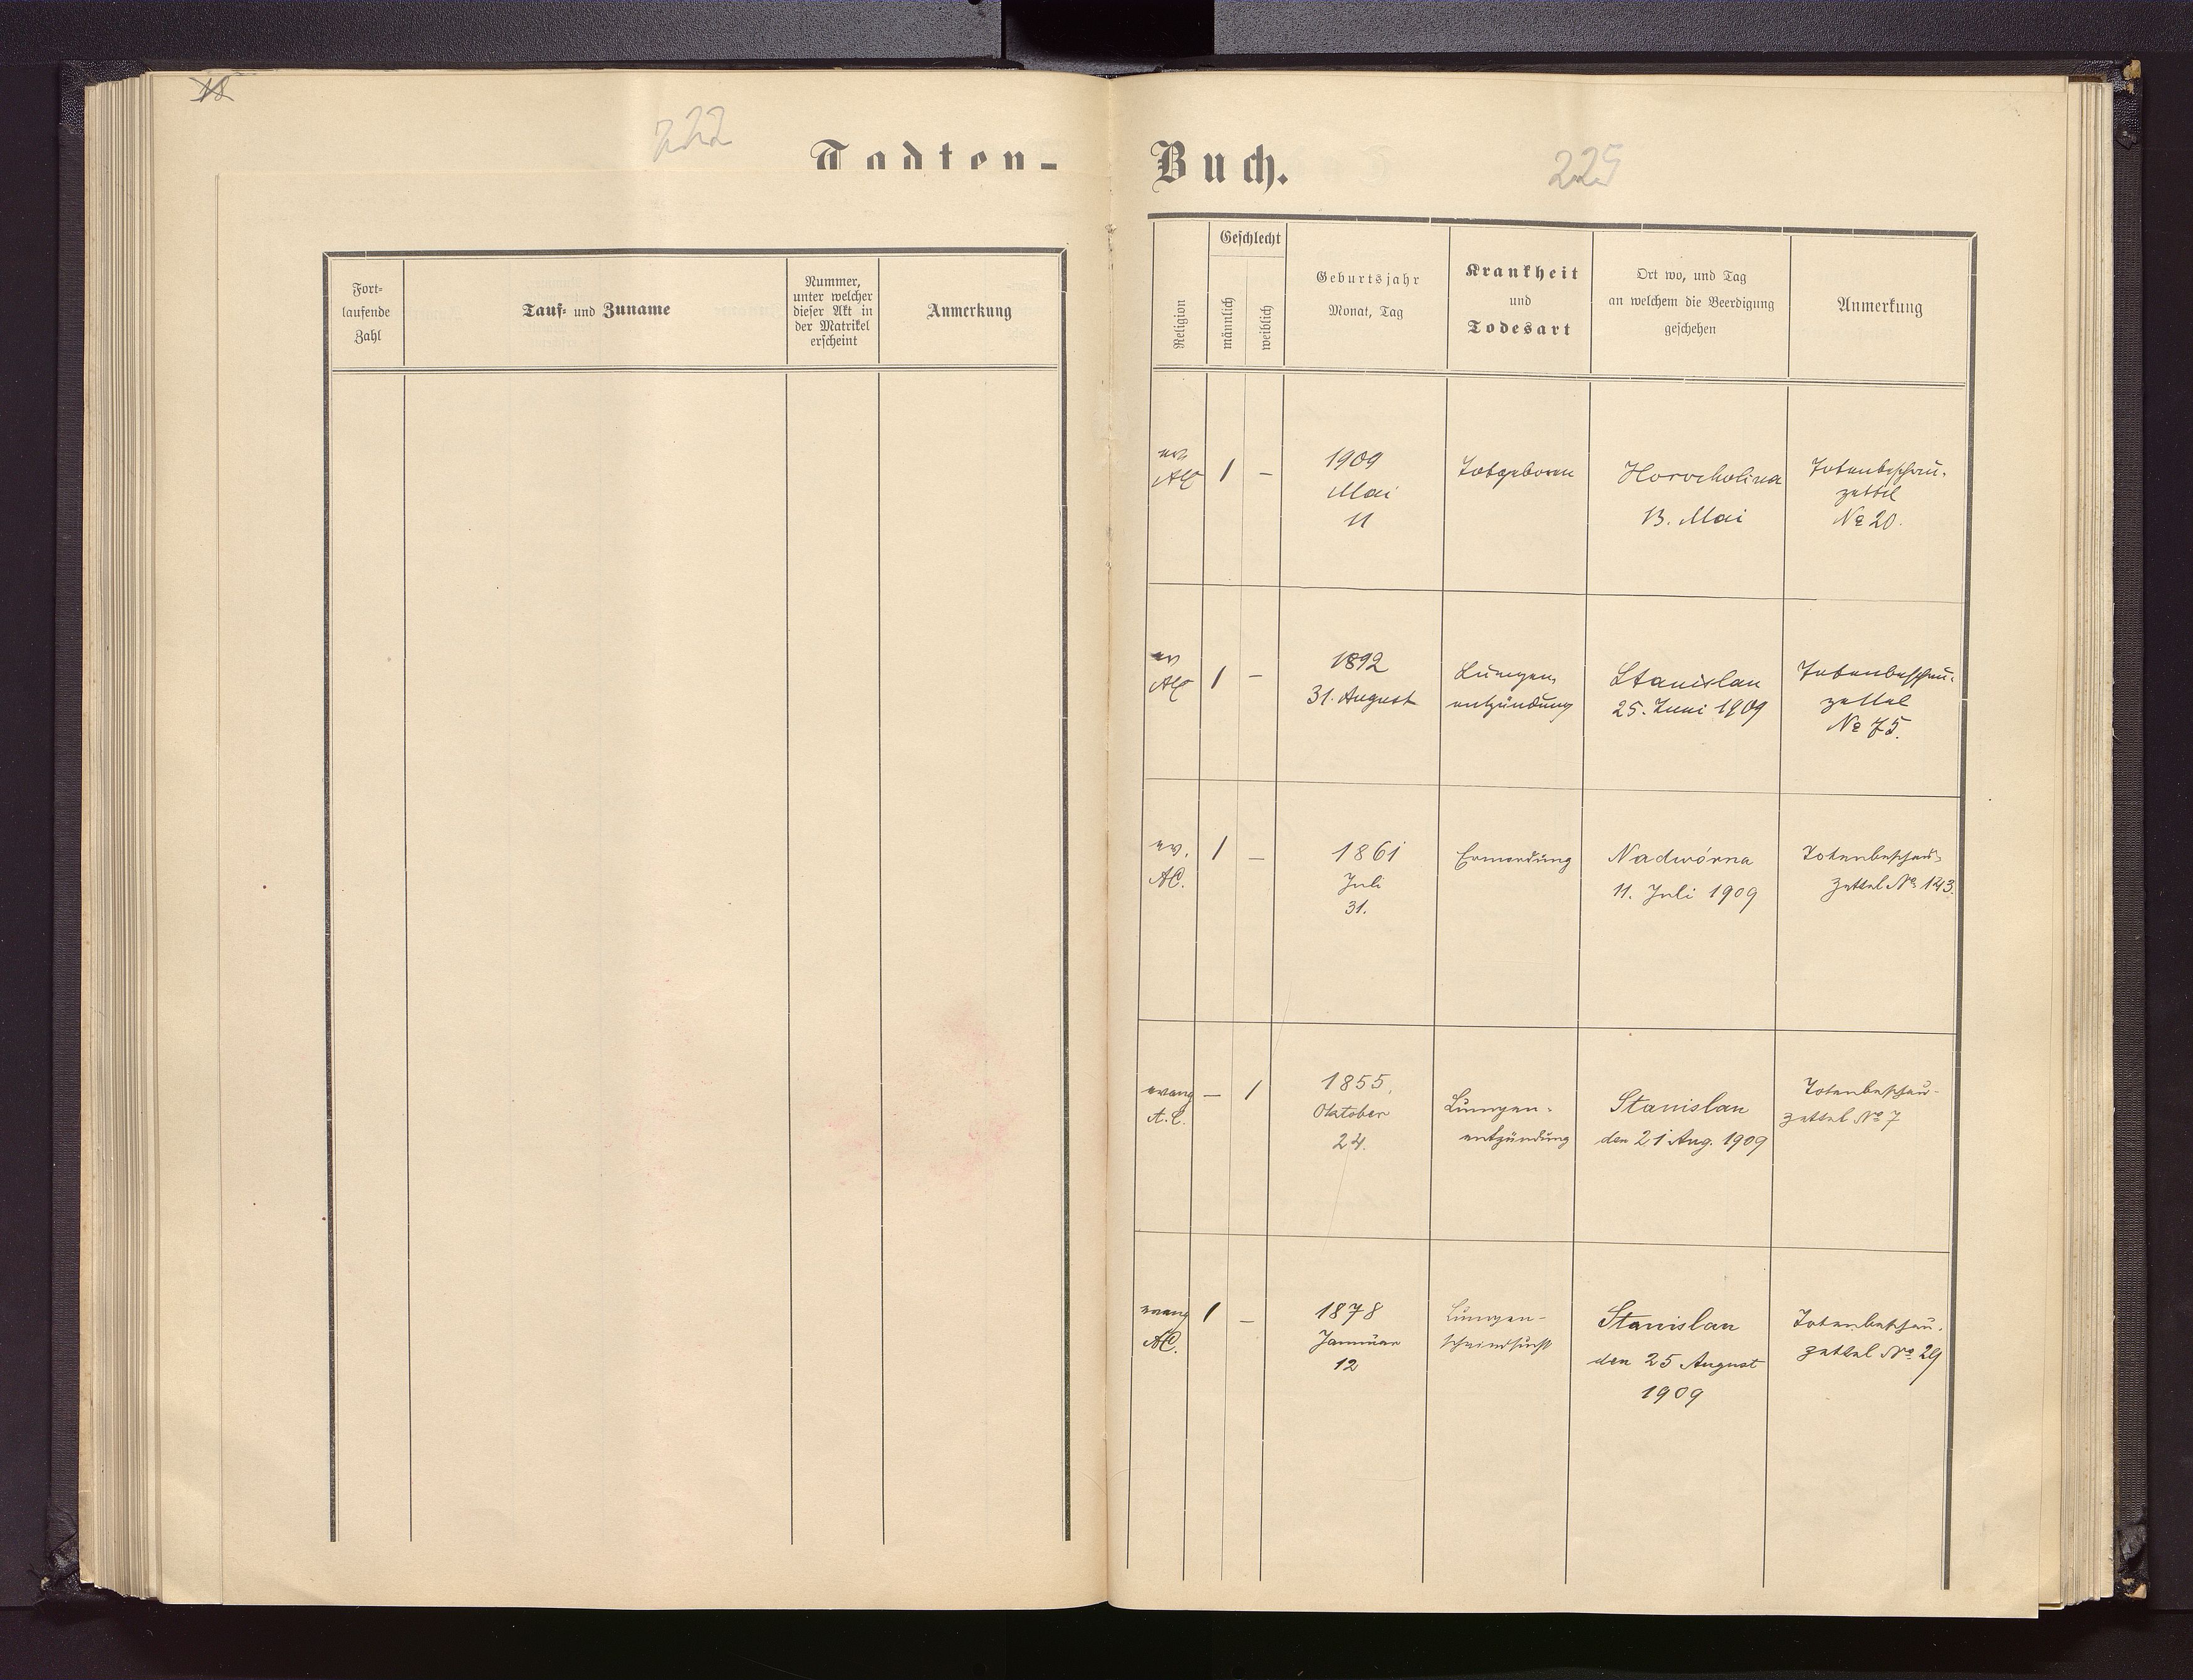 18
222
Todten-
Fort-
laufende
Zahl
Tauf- und Zuname
Nummer,
unter welcher
dieser Akt in
der Matrikel
erscheint
Anmerkung
Buch.
225
Religion
Geschlecht
männlich
weiblich
Geburtsjahr
Monat, Tag
Krankheit
und
Todesart
Ort wo, und Tag
an welchem die Beerdigung
geschehen
Anmerkung
ev
AC
1
–
1909
Mai
11
Totgeboren
Horocholina
13. Mai
Totenbeschau-
zettel
No 20.
ev
AC
1
–
1892
31. August
Lungen-
entzündung
Stanislau
25. Juni 1909
Totenbeschau-
zettel
No 75.
ev.
AC.
1
–
1861
Juli
31.
Ermordung
Nadwórna
11. Juli 1909
Totenbeschau-
zettel No 123.
evang
A.C.
–
1
1855.
Oktober
24.
Lungen-
entzündung
Stanislau
den 21 Aug. 1909
Totenbeschau-
zettel No 7
evang
AC.
1
–
1878
Januar
12
Lungen-
schwindsucht
Stanislau
den 25 August
1909
Totenbeschau-
zettel No 29